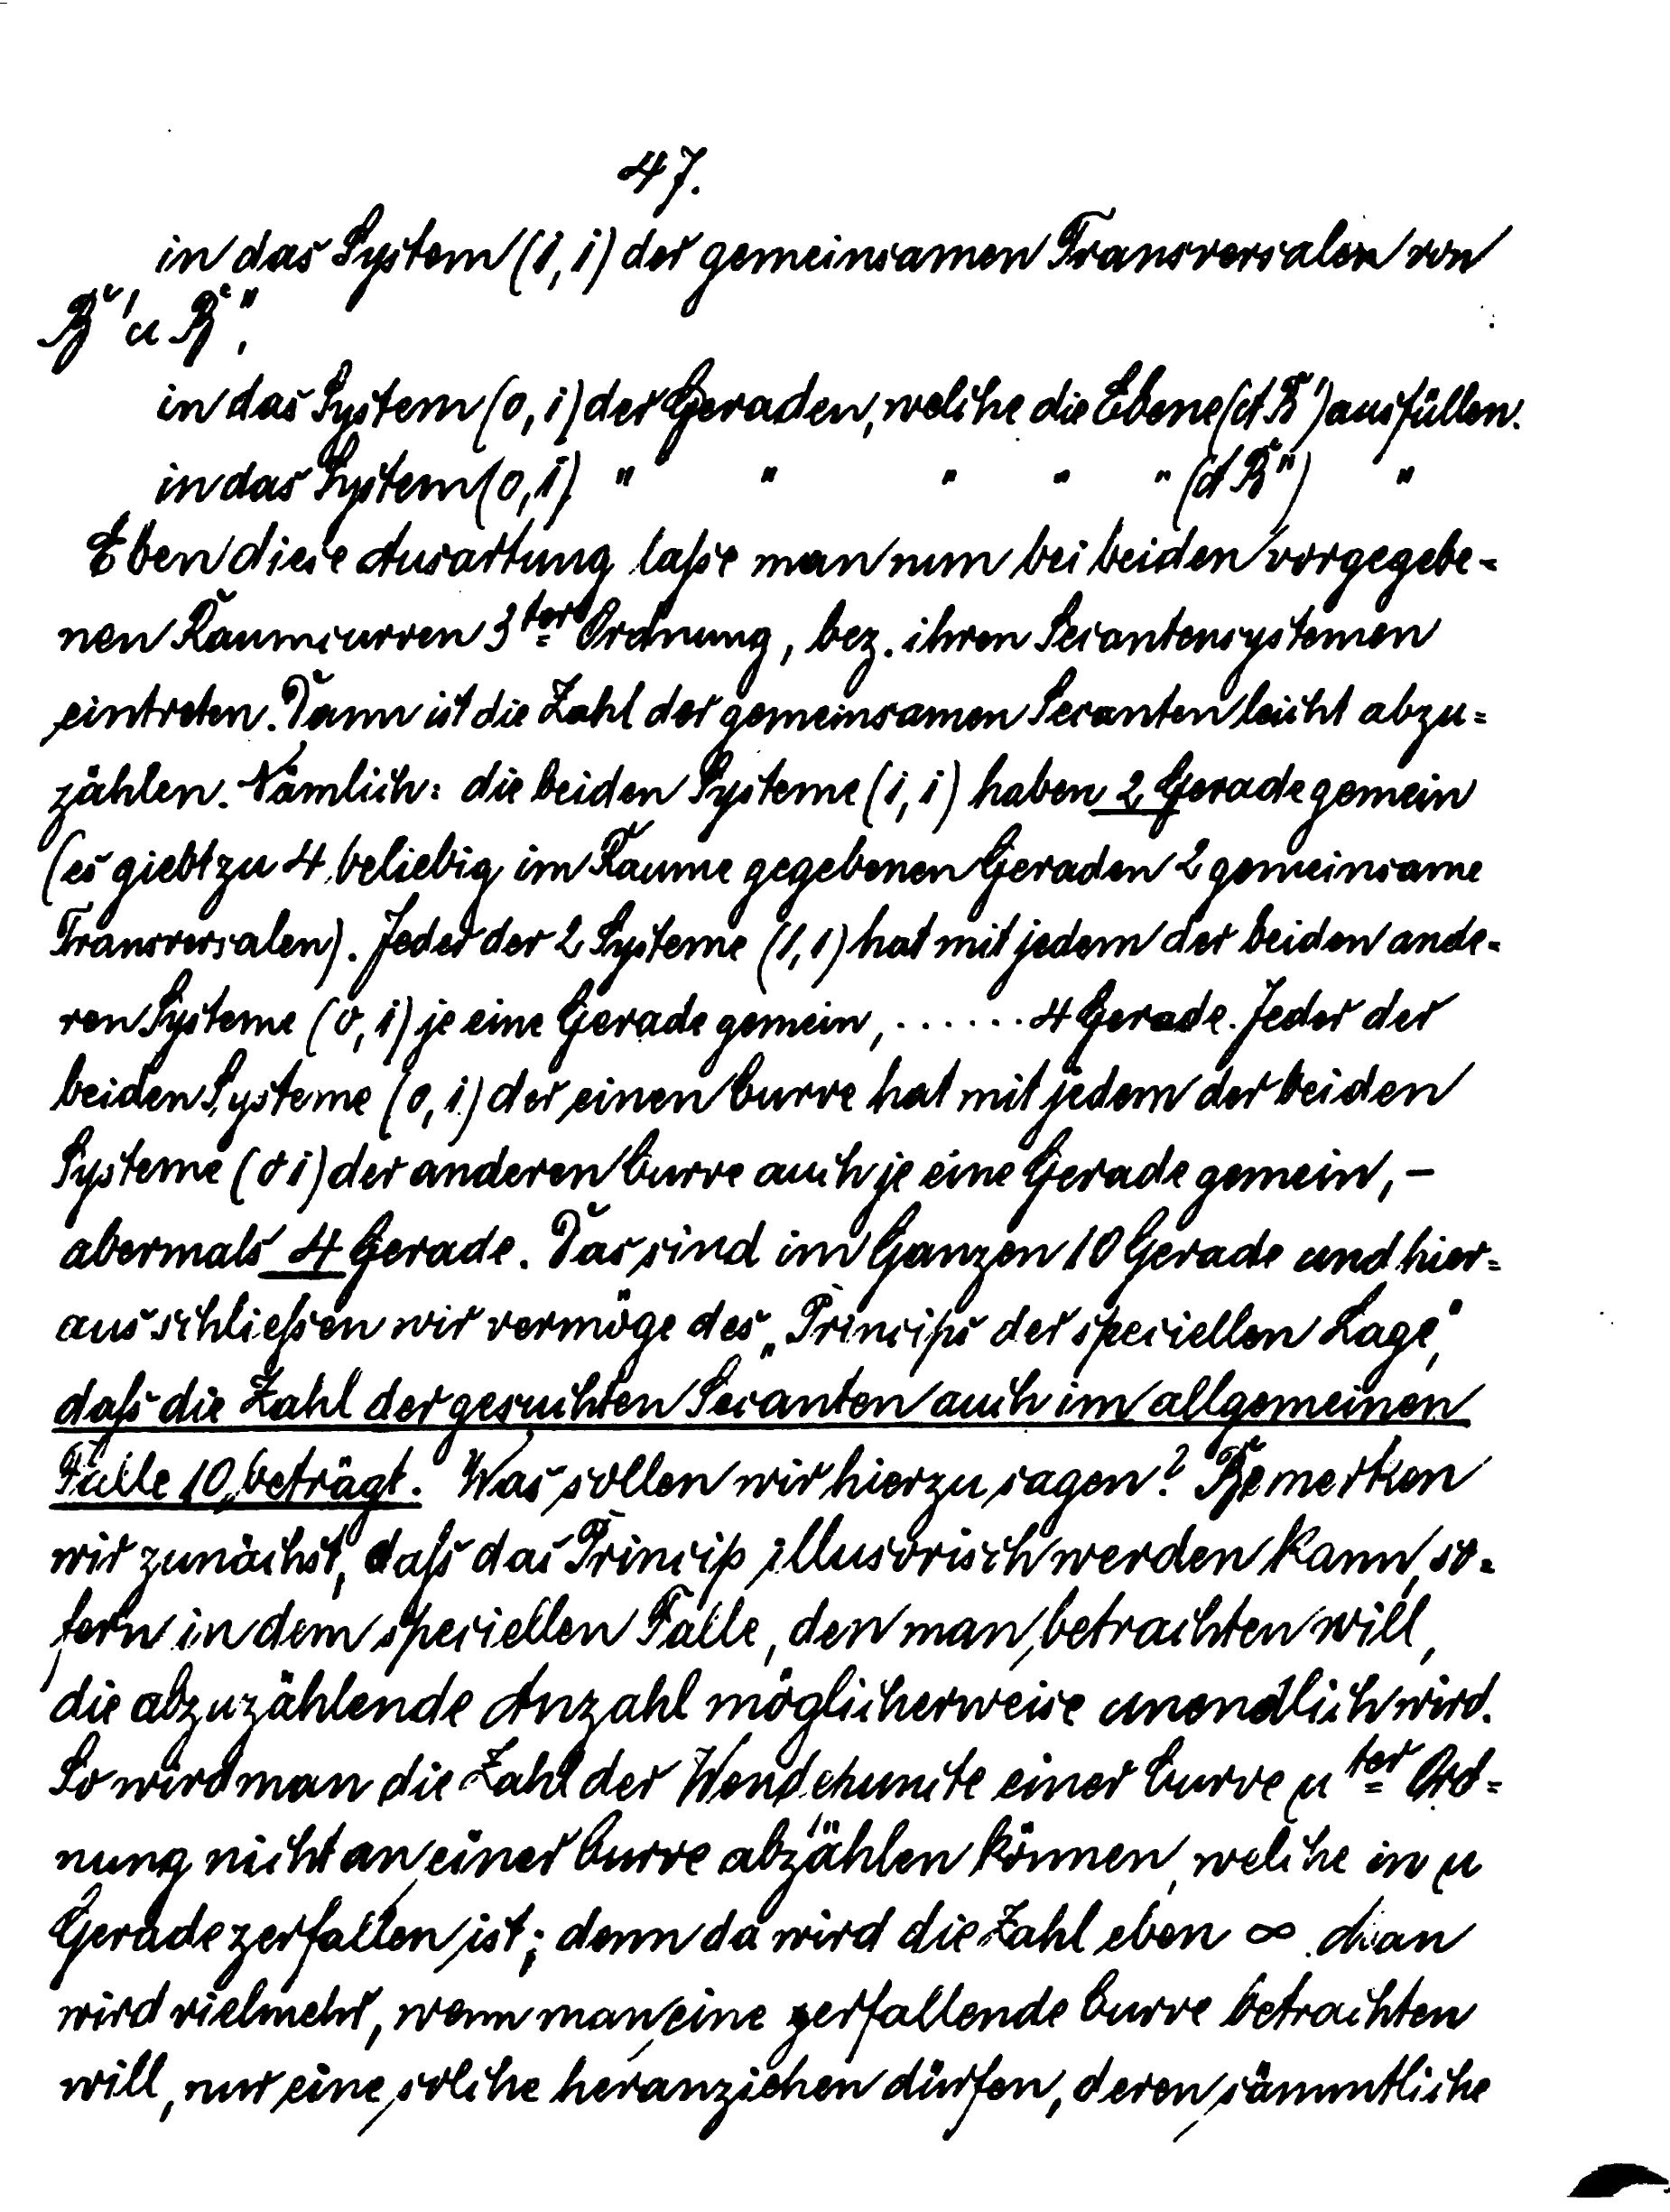 47.
in das System (1,1) der gemeinsamen Transversalen von
B' u B",
in das System (0,1) der Geraden, welche die Ebene (A B') ausfüllen.
in das System (0,1) " " " " " (A B") "
Eben diese Ausartung lasse man nun bei beiden vorgegebe-
nen Raumcurven 3ter Ordnung, bez. ihren Secantensystemen
eintreten. Dann ist die Zahl der gemeinsamen Secanten leicht abzu=
zählen. Nämlich: die beiden Systeme (1,1) haben 2 Gerade gemein
(es giebt zu 4 beliebig im Raume gegebenen Geraden 2 gemeinsame
Transversalen). Jeder der 2 Systeme (1,1) hat mit jedem der beiden ande-
ren Systeme (0,1) je eine Gerade gemein, ...... 4 Gerade. Jeder der
beiden Systeme (0,1) der einen Curve hat mit jedem der beiden
Systeme (0 1) der anderen Curve auch je eine Gerade gemein, -
abermals 4 Gerade. Das sind im Ganzen 10 Gerade und hier=
aus schließen wir vermöge des „Princips der speciellen Lage",
daß die Zahl der gesuchten Secanten auch im allgemeinen
Falle 10 beträgt. Was sollen wir hierzu sagen? Bemerken
wir zunächst, daß das Princip illusorisch werden kann, so-
fern in dem speciellen Falle, den man betrachten will,
die abzuzählende Anzahl möglicherweise unendlich wird.
So wird man die Zahl der Wendepuncte einer Curve μter Ord=
nung nicht an einer Curve abzählen können, welche in μ
Gerade zerfallen ist; denn da wird die Zahl eben ∞. Man
wird vielmehr, wenn man eine zerfallende Curve betrachten
will, nur eine solche heranziehen dürfen, deren sämmtliche